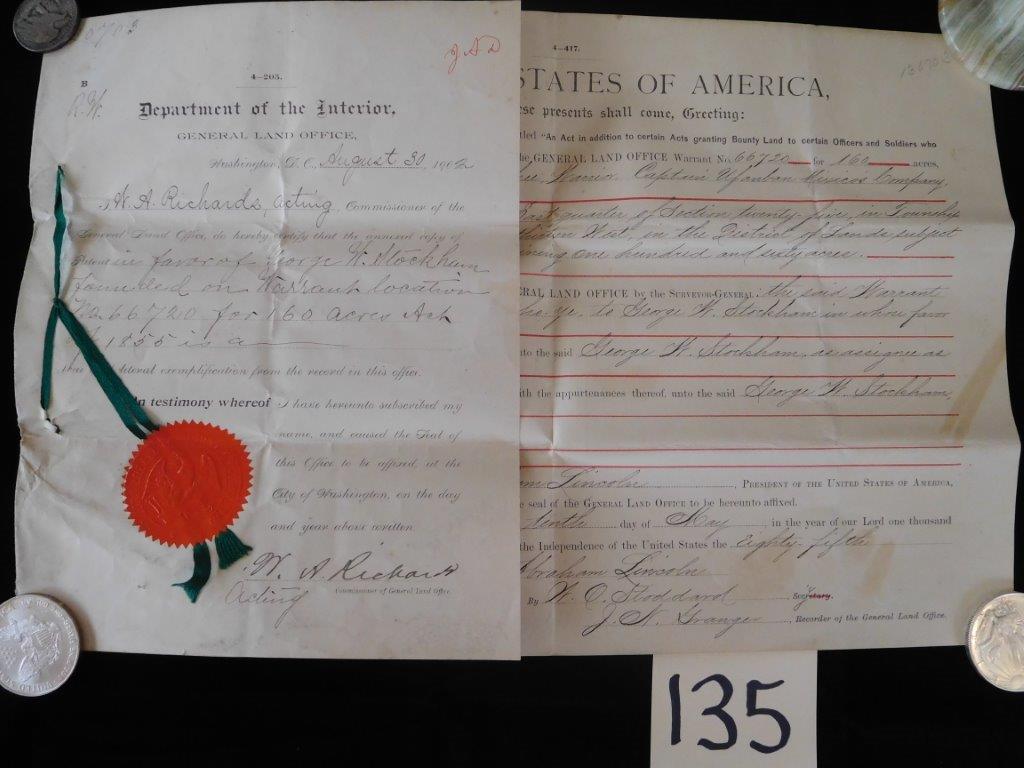 4-203.
B
R.W.
J A D
Department of the Interior,
GENERAL LAND OFFICE,
Washington, D.C., August 30, 1902
I, W. A. Richards, acting, Commissioner of the
General Land Office, do hereby certify that the annexed copy of
Patent in favor of George W. Stockham
founded on Warrant location
No 66720 for 160 acres Act
1855 is a
literal exemplification from the record in this office.
In testimony whereof I have hereunto subscribed my
name, and caused the seal of
this Office to be affixed, at the
City of Washington, on the day
and year above written.
W. A. Richards
Acting Commissioner of General Land Office.
4-417.
STATES OF AMERICA,
se presents shall come, Greeting:
tled "An Act in addition to certain Acts granting Bounty Land to certain Officers and Soldiers who
he, GENERAL LAND OFFICE Warrant No. 66720 for 160 acres,
Warrior Captain Company,
East quarter of Section twenty-five, in Township
West, in the District of Lands subject
ining one hundred and sixty acres.
RAL LAND OFFICE by the SURVEYOR-GENERAL: the said Warrant
to George W. Stockham in whose favor
nto the said George W. Stockham, as assignee as
ith the appurtenances thereof, unto the said George W. Stockham,
am Lincoln, PRESIDENT OF THE UNITED STATES OF AMERICA,
e seal of the GENERAL LAND OFFICE to be hereunto affixed.
tenth day of May, in the year of our Lord one thousand
the Independence of the United States the Eighty-fifth
Abraham Lincoln
By W. O. Stoddard, Sec'y
J. N. Granger, Recorder of the General Land Office.
135